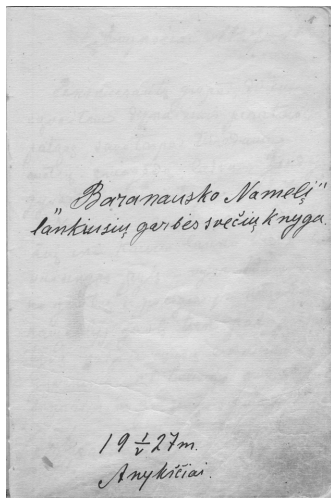 „Baranausko Namelį"
lankiusių garbės svečių knyga.
19 1/V 27 m.
Anykščiai.